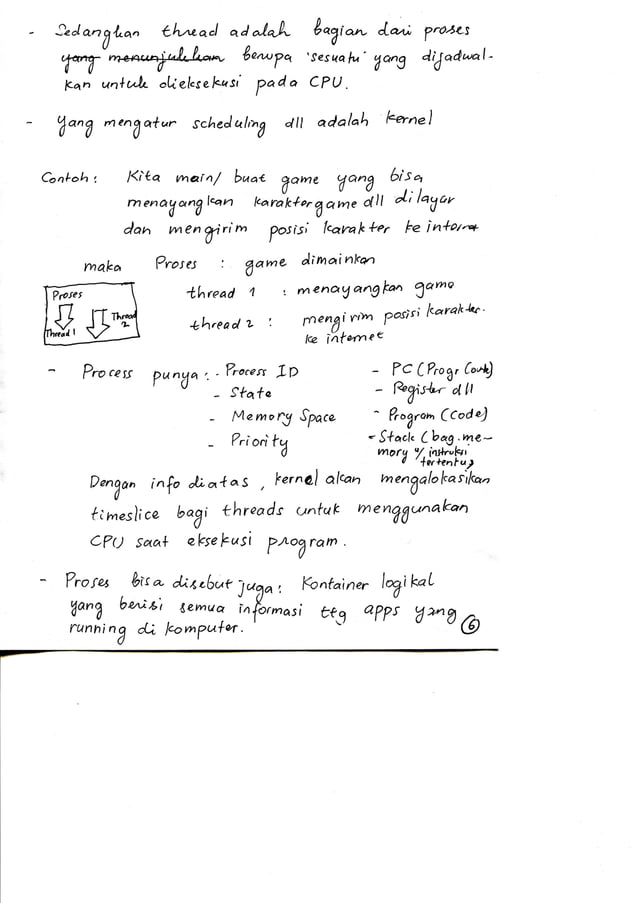 - Sedangkan thread adalah bagian dari proses
yang menunjukkan berupa 'sesuatu' yang dijadwal-
kan untuk dieksekusi pada CPU.
- Yang mengatur scheduling dll adalah kernel
Contoh : Kita main/ buat game yang bisa
menayangkan karakter game dll dilayar
dan mengirim posisi karakter ke internet
maka Proses : game dimainkan
thread 1 : menayangkan game
thread 2 : mengirim posisi karakter.
ke internet
Proses
Thread 1
Thread 2
- Process punya : - Process ID
- State
- Memory Space
- Priority
- PC (Progr Count)
- Register dll
- Program (Code)
- Stack (bag. me-
mory u/ instruksi
tertentu)
Dengan info diatas, kernel akan mengalokasikan
timeslice bagi threads untuk menggunakan
CPU saat eksekusi program.
- Proses bisa disebut juga : Kontainer logikal
yang berisi semua informasi ttg apps yang
running di komputer.
6